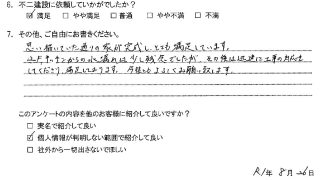 6. 不二建設に依頼していかがでしたか?
☑ 満足 □ やや満足 □ 普通 □ やや不満 □ 不満
7. その他、ご自由にお書きください。
思い描いていた通りの家が完成しとても満足しています。
エアコンからの水漏れは少し残念でしたが、その後は迅速に工事の対応も
してくださり満足しております。今後ともよろしくお願い致します。
このアンケートの内容を他のお客様に紹介して良いですか?
□ 実名で紹介して良い
☑ 個人情報が判明しない範囲で紹介して良い
□ 社外から一切出さないでほしい
R1年 8月 26日